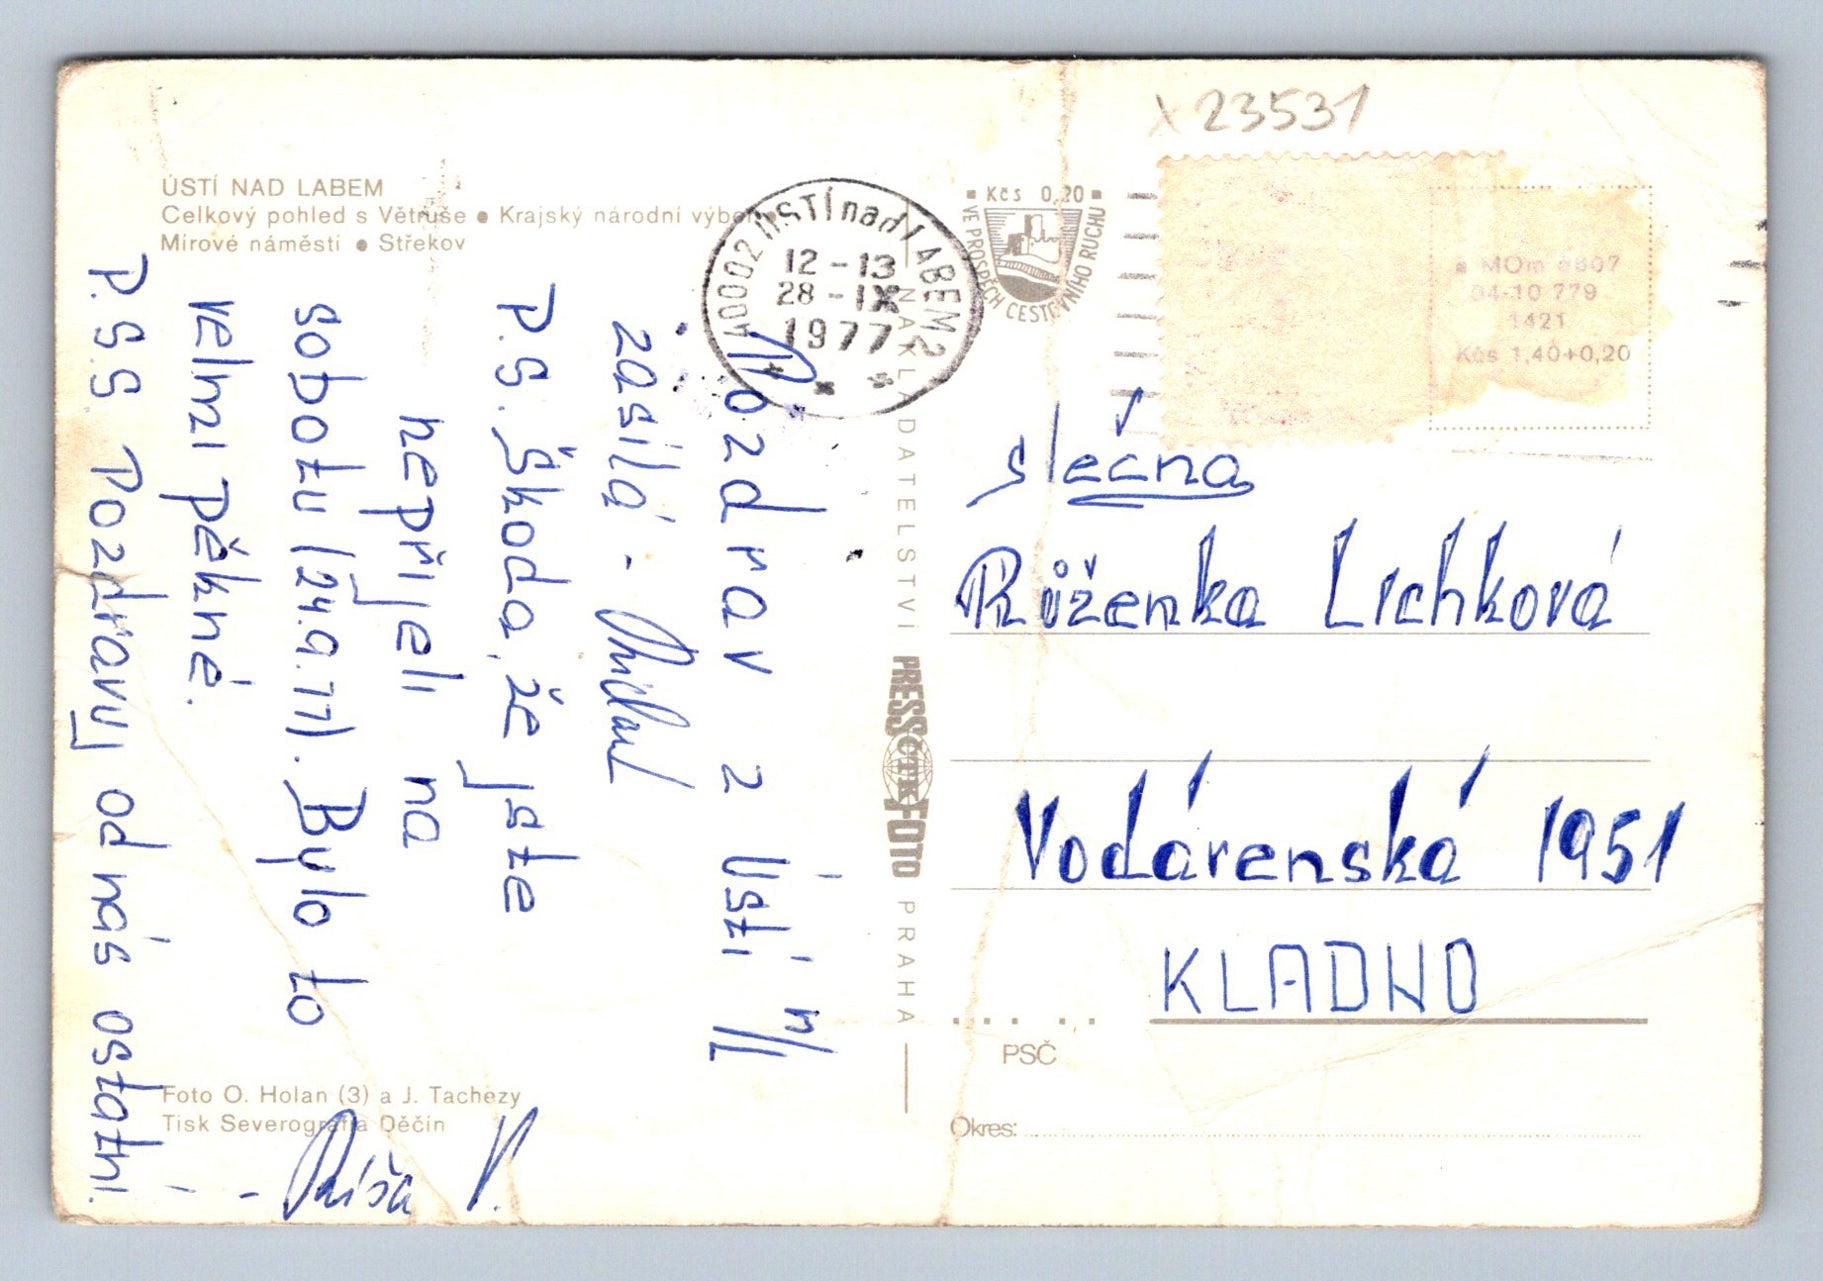 x 23531
ÚSTÍ NAD LABEM
Celkový pohled s Větruše ● Krajský národní výbor ●
Mírové náměstí ● Střekov
40002 ÚSTÍ nad LABEM 2
12-13
28-IX
1977
Kčs 0,20
VE PROSPĚCH CESTOVNÍHO RUCHU
MOm 0607
04-10 779
1421
Kčs 1,40+0,20
Pozdrav z Ústí n/L
zasílá -
P.S. Škoda, že jste
nepřijeli na
sobotu (24.9.77). Bylo to
velmi pěkné.
P.S.S Pozdravy od nás ostatní.
- - Ríša V.
NAKLADATELSTVÍ PRESSFOTO PRAHA
ČTK
slečna
Růženka Lichková
Vodárenská 1951
KLADNO
PSČ
Okres:
Foto O. Holan (3) a J. Tachezy
Tisk Severografia Děčín